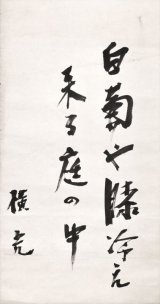 白菊や膝冷え
来る庭の中